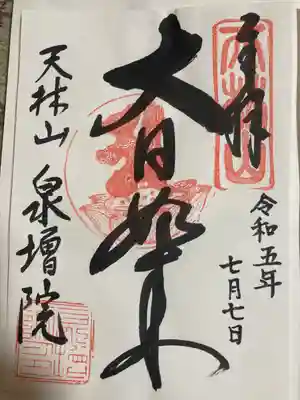 奉拝
令和五年
七月七日
大日如来
天林山 泉増院